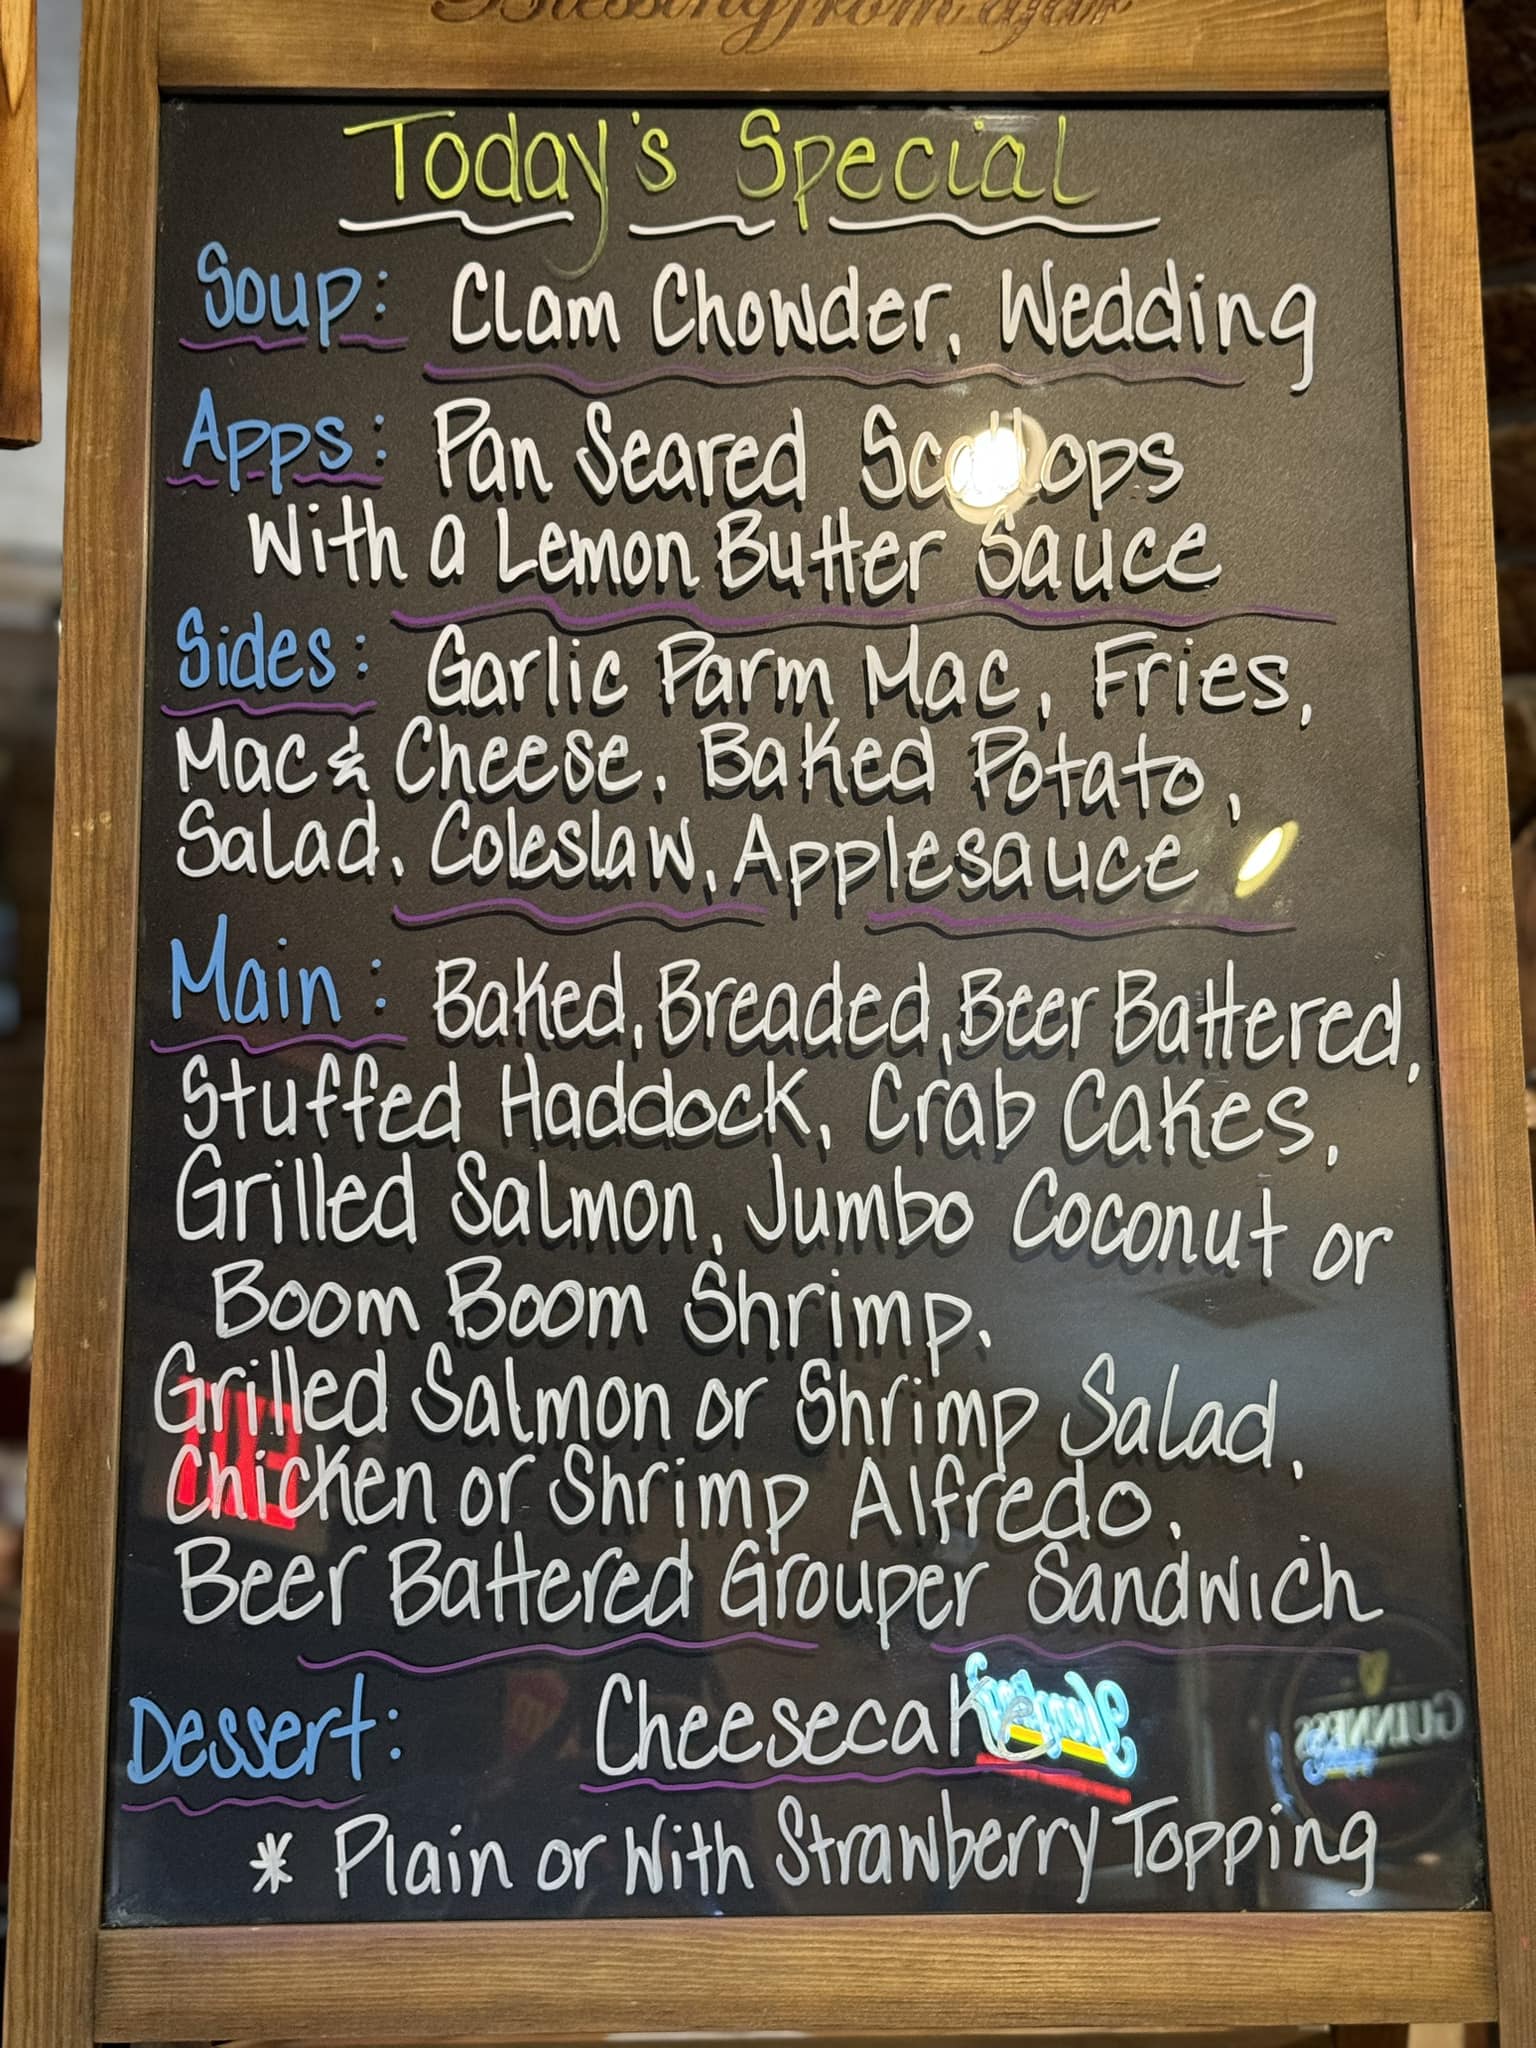 Blessing from afar
Today's Special
Soup: Clam Chowder, Wedding
Apps: Pan Seared Scallops
With a Lemon Butter Sauce
Sides: Garlic Parm Mac, Fries,
Mac & Cheese, Baked Potato,
Salad, Coleslaw, Applesauce
Main: Baked, Breaded, Beer Battered,
Stuffed Haddock, Crab Cakes,
Grilled Salmon, Jumbo Coconut or
Boom Boom Shrimp,
Grilled Salmon or Shrimp Salad,
Chicken or Shrimp Alfredo,
Beer Battered Grouper Sandwich
Dessert: Cheesecake
GUINNESS
* Plain or With Strawberry Topping